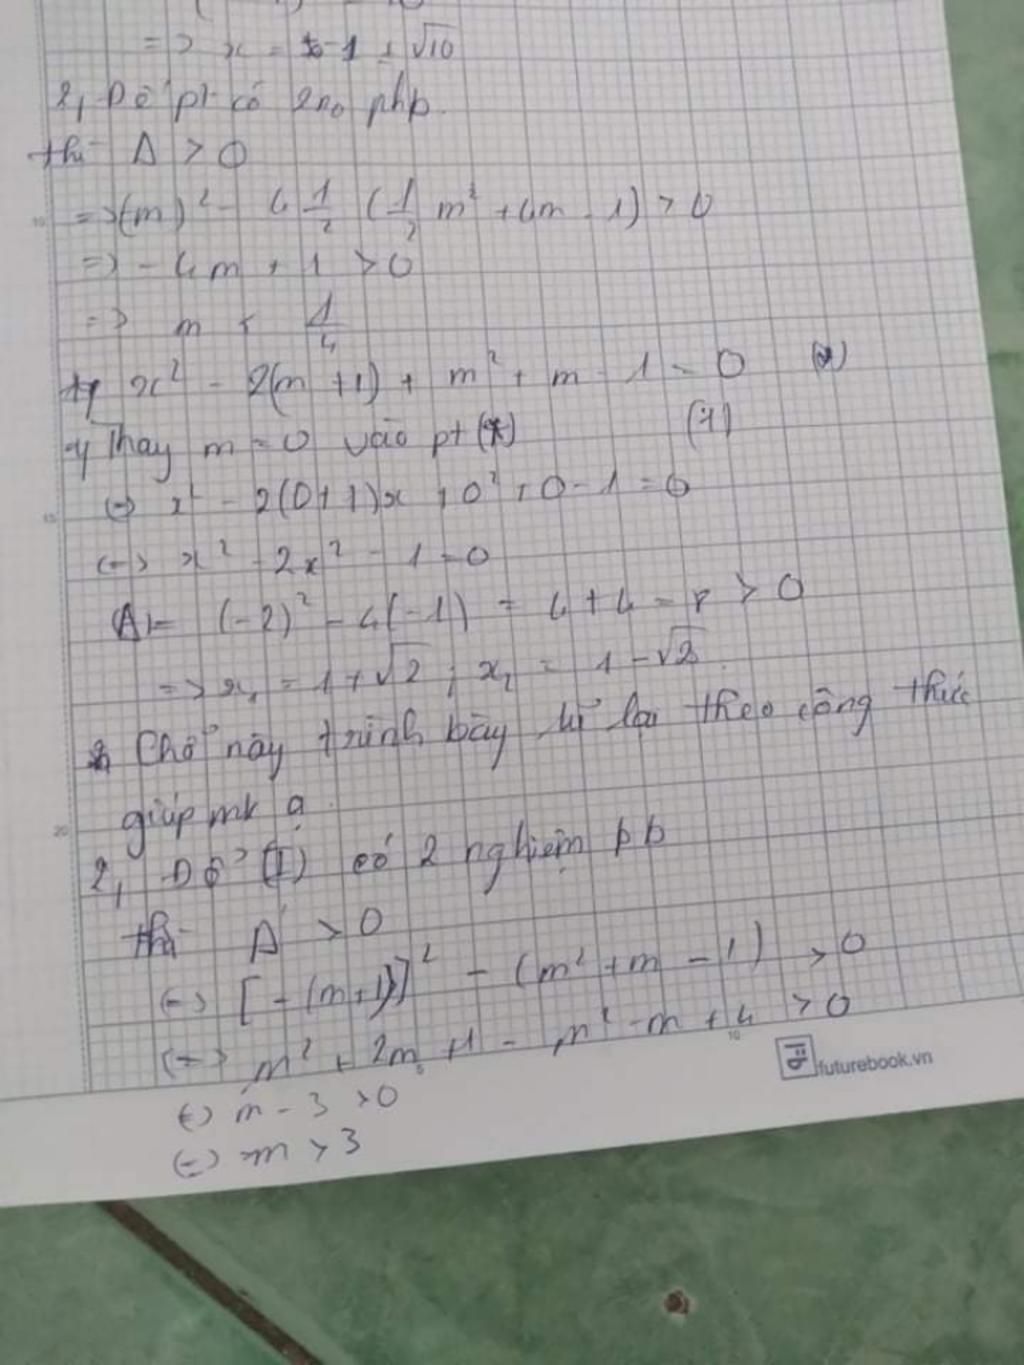 => x = -1 ± √10
2, Để pt có 2no phb.
thì Δ > 0
=> (m)² - 4 1/2 (1/2 m² + 4m - 1) > 0
=> - 4m + 1 > 0
=> m < 1/4
x² - 2(m + 1) + m² + m - 1 = 0 (*)
Thay m = 0 vào pt (*) (1)
(=) x² - 2(0 + 1)x + 0² + 0 - 1 = 0
(=) x² - 2x² - 1 = 0
Δ = (-2)² - 4(-1) = 4 + 4 = 8 > 0
=> x₁ = 1 + √2 ; x₂ = 1 - √2.
Chỗ này trình bày lại theo công thức
giúp mk ạ.
2, Để (1) có 2 nghiệm pb
thì Δ' > 0
(=) [- (m+1)]² - (m² + m - 1) > 0
(=) m² + 2m + 1 - m² - m + 4 > 0
futurebook.vn
(=) m - 3 > 0
(=) m > 3